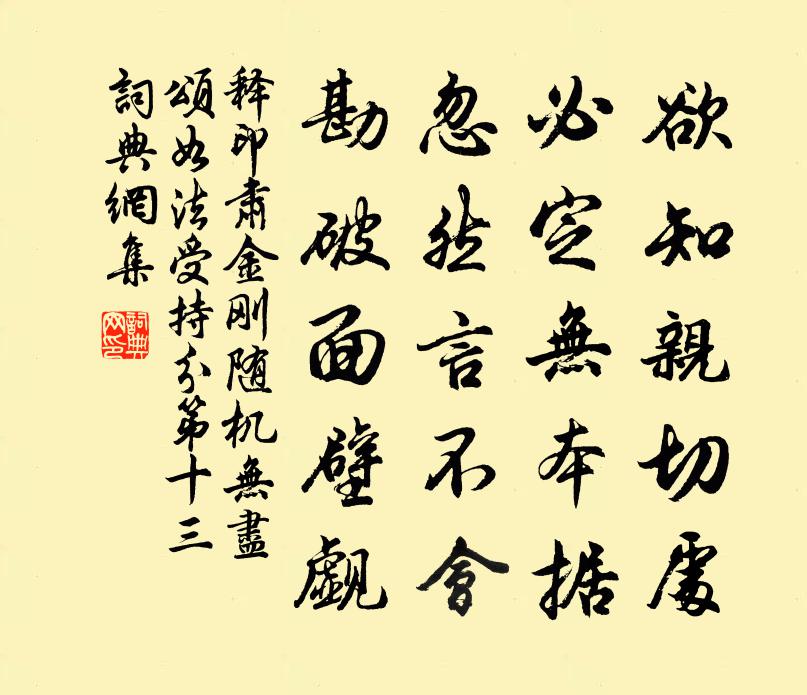 欲知親切處
必定無本据
忽然言不會
勘破面壁觑
释印肃金刚随机無盡
頌如法受持分第十三
詞典網集
詞典
网印